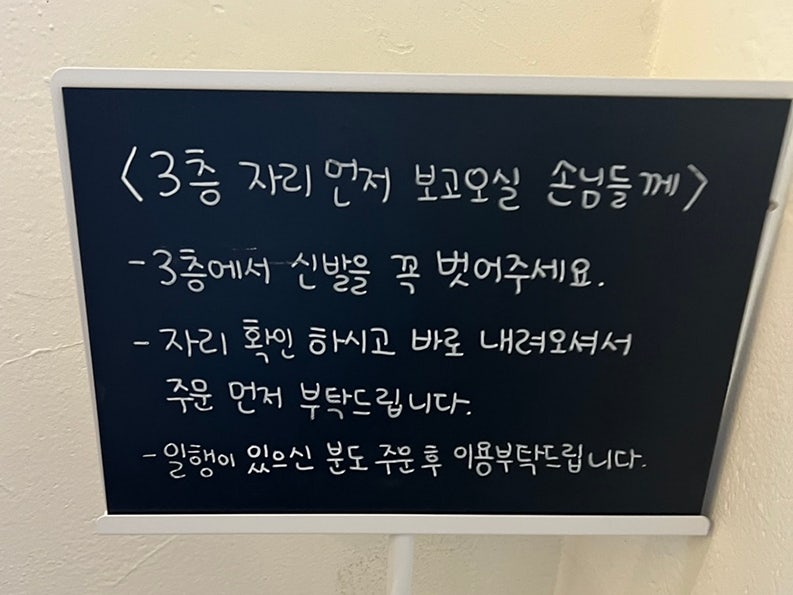 <3층 자리 먼저 보고오실 손님들께>
- 3층에서 신발을 꼭 벗어주세요.
- 자리 확인 하시고 바로 내려오셔서
주문 먼저 부탁드립니다.
- 일행이 있으신 분도 주문 후 이용부탁드립니다.